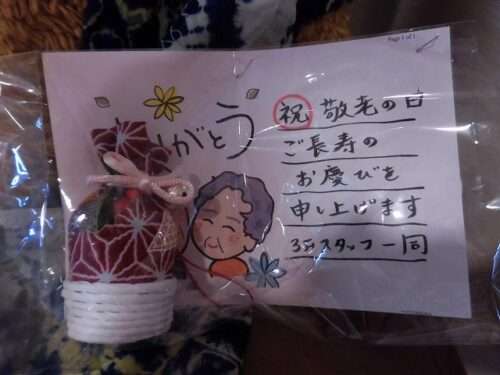 Page 1 of 1
がとう
祝 敬老の日
ご長寿の
お慶びを
申し上げます
3Sスタッフ一同